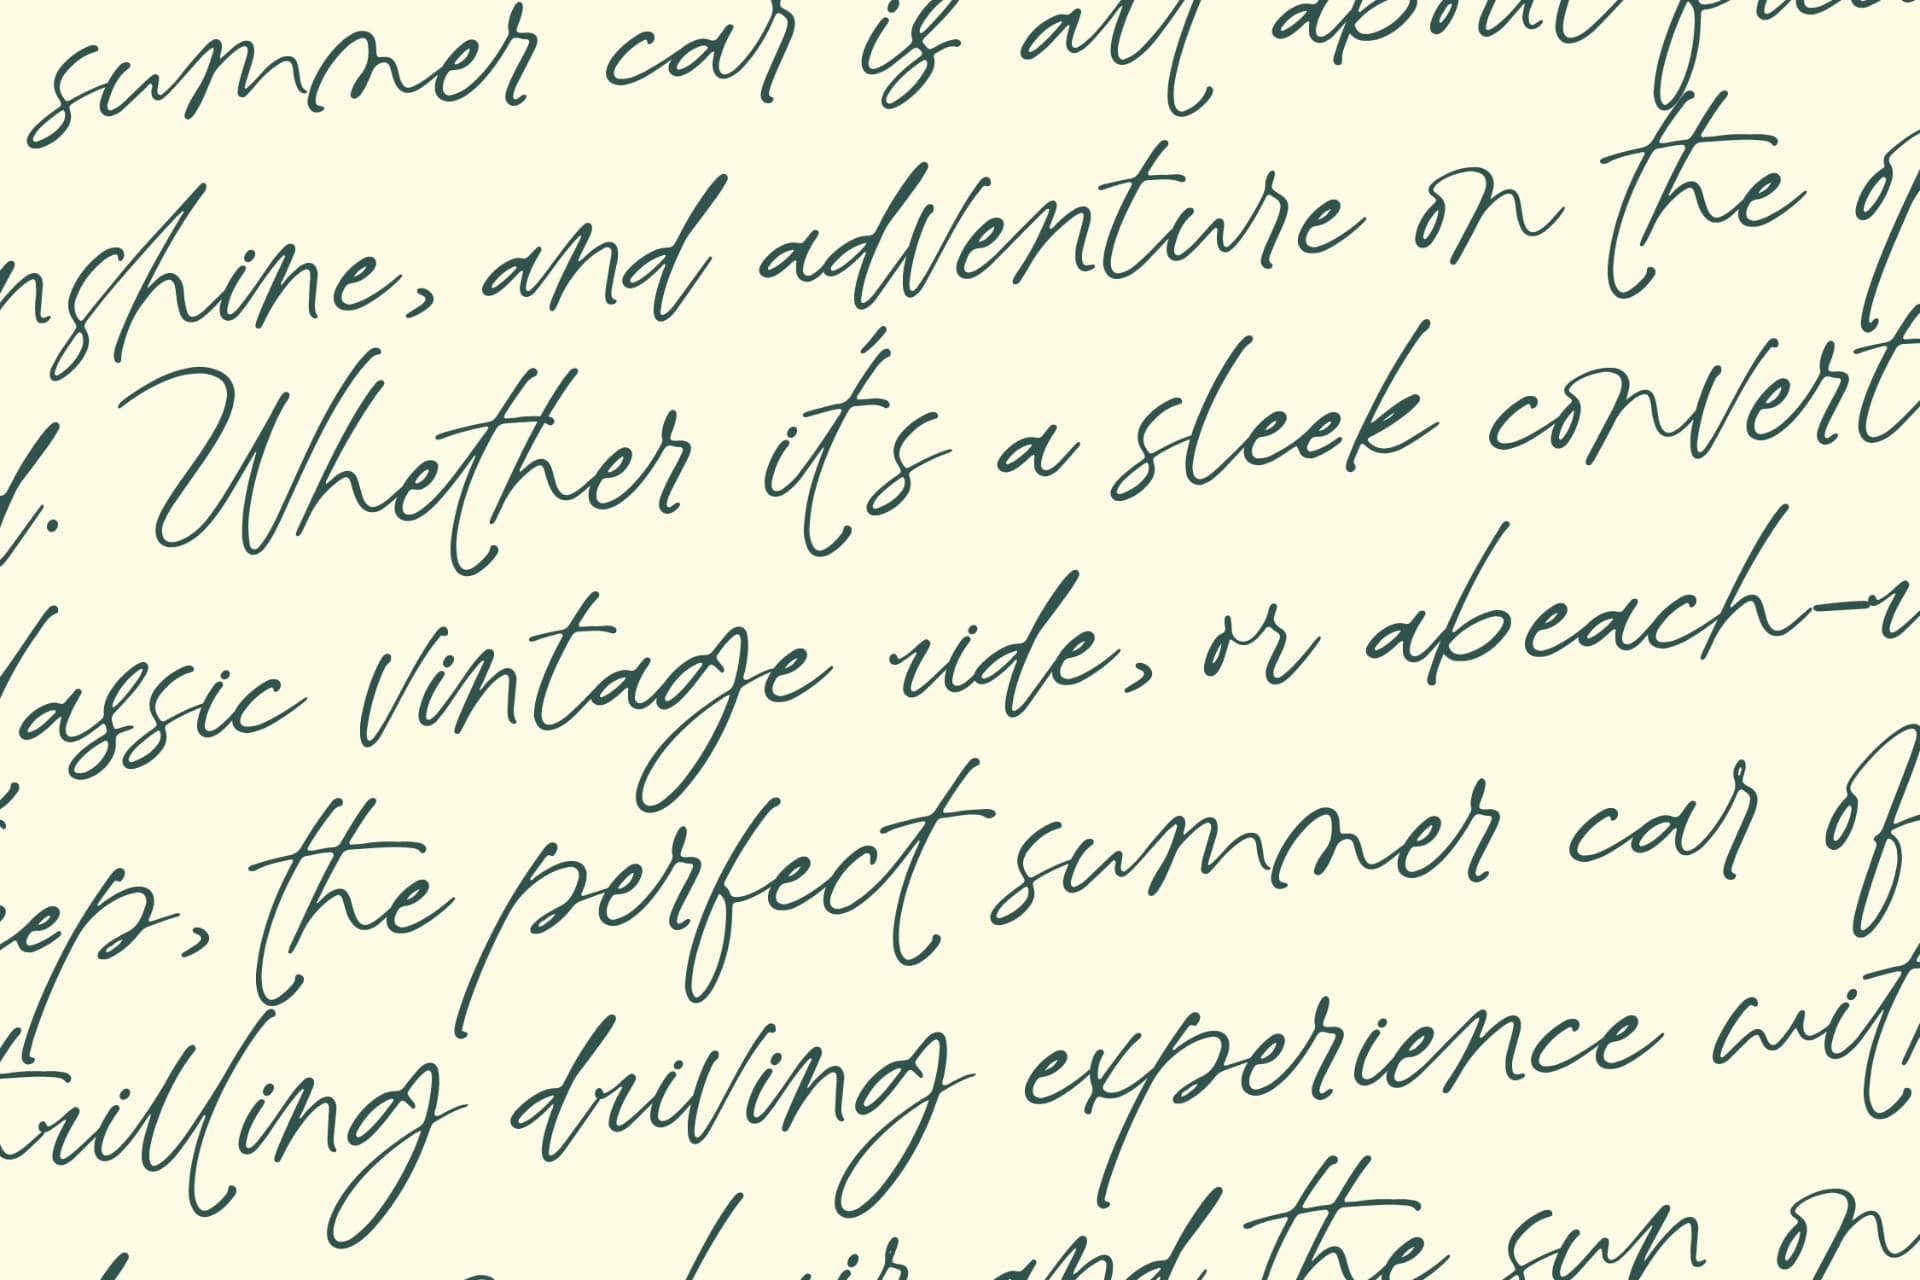 summer car is all about
nshine, and adventure on the op
d. Whether it's a sleek convert
lassic vintage ride, or abeach-
eep, the perfect summer car of
rilling driving experience with
hair and the sun on